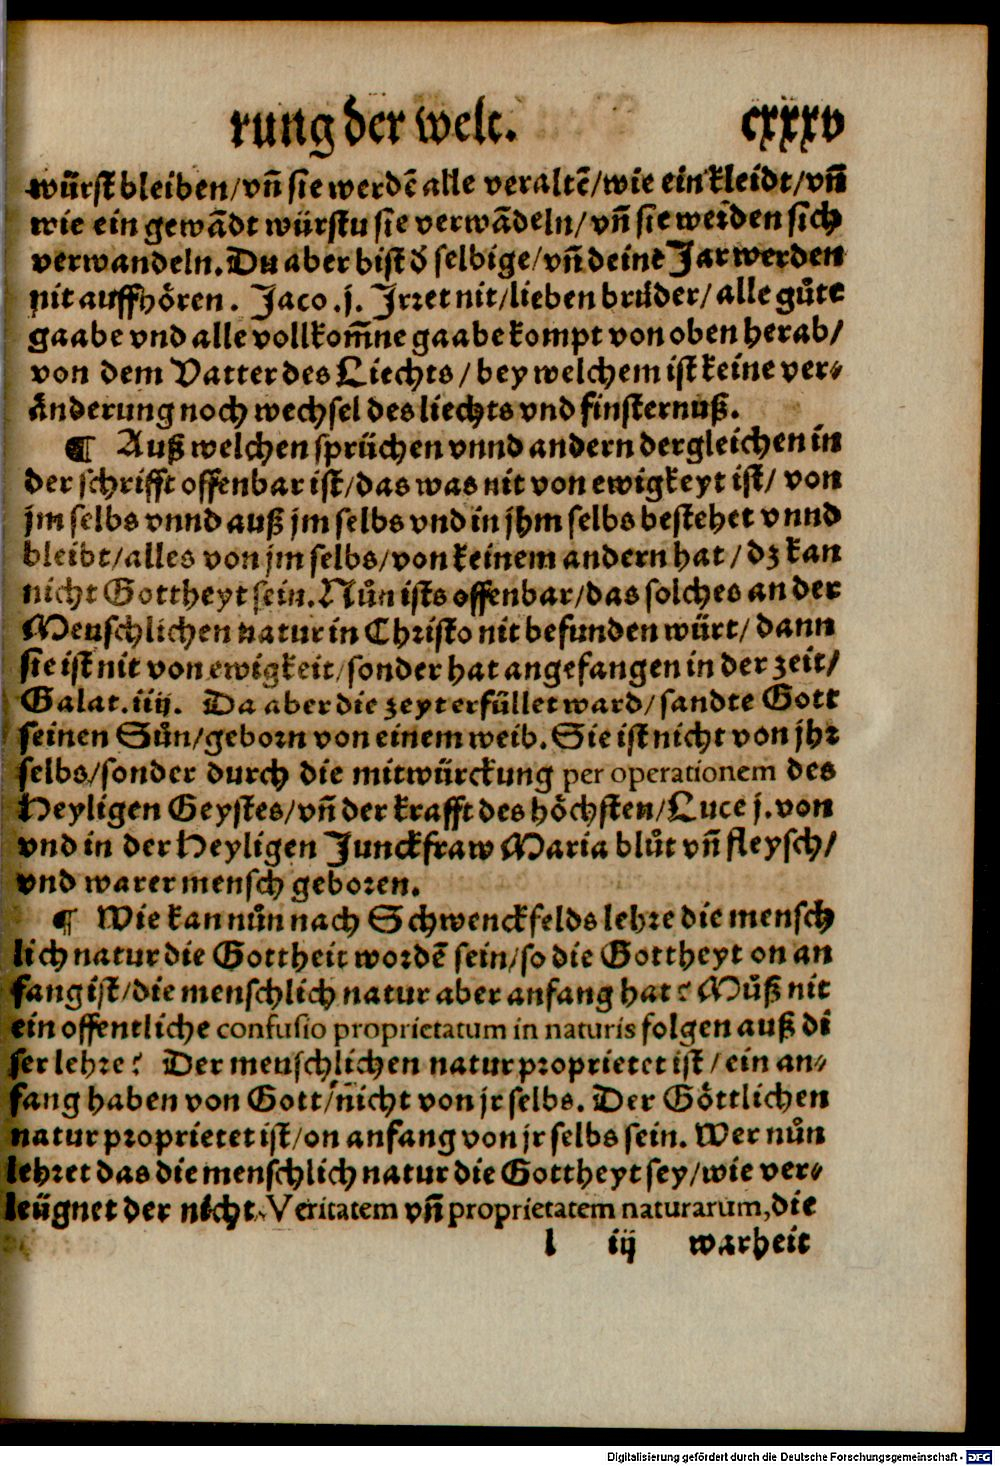 rung der welt. cxxxv
würst bleiben/vñ sie werdē alle veraltē/wie ein kleidt/vñ
wie ein gewādt würstu sie verwādeln/vñ sie werden sich
verwandeln. Du aber bist d̄ selbige/vñ deine Jar werden
nit auffhören. Jaco. j. Jrret nit/lieben brůder/alle gůte
gaabe vnd alle vollkom̄ne gaabe kompt von oben herab/
von dem Vatter des Liechts/bey welchem ist keine ver⸗
änderung noch wechsel des liechts vnd finsternuß.
¶ Auß welchen sprüchen vnnd andern dergleichen in
der schrifft offenbar ist/das was nit von ewigkeyt ist/von
jm selbs vnnd auß jm selbs vnd in jhm selbs bestehet vnnd
bleibt/alles von jm selbs/von keinem andern hat/dz kan
nicht Gottheyt sein. Nůn ists offenbar/das solches an der
Menschlichen natur in Christo nit befunden würt/dann
sie ist nit von ewigkeit/sonder hat angefangen in der zeit/
Galat. iiij. Da aber die zeyt erfüllet ward/sandte Gott
seinen Sůn/geborn von einem weib. Sie ist nicht von jhr
selbs/sonder durch die mitwürckung per operationem des
Heyligen Geystes/vñ der krafft des höchsten/Luce j. von
vnd in der Heyligen Junckfraw Maria blůt vñ fleysch/
vnd warer mensch geboren.
¶ Wie kan nůn nach Schwenckfelds lehre die mensch
lich natur die Gottheit wordē sein/so die Gottheyt on an
fang ist/die menschlich natur aber anfang hat? Můß nit
ein offentliche confusio proprietatum in naturis folgen auß di
ser lehre? Der menschlichen natur proprietet ist/ein an⸗
fang haben von Gott/nicht von jr selbs. Der Göttlichen
natur proprietet ist/on anfang von jr selbs sein. Wer nůn
lehret das die menschlich natur die Gottheyt sey/wie ver⸗
leügnet der nicht Veritatem vñ proprietatem naturarum, die
l iij warheit
Digitalisierung gefördert durch die Deutsche Forschungsgemeinschaft - DFG